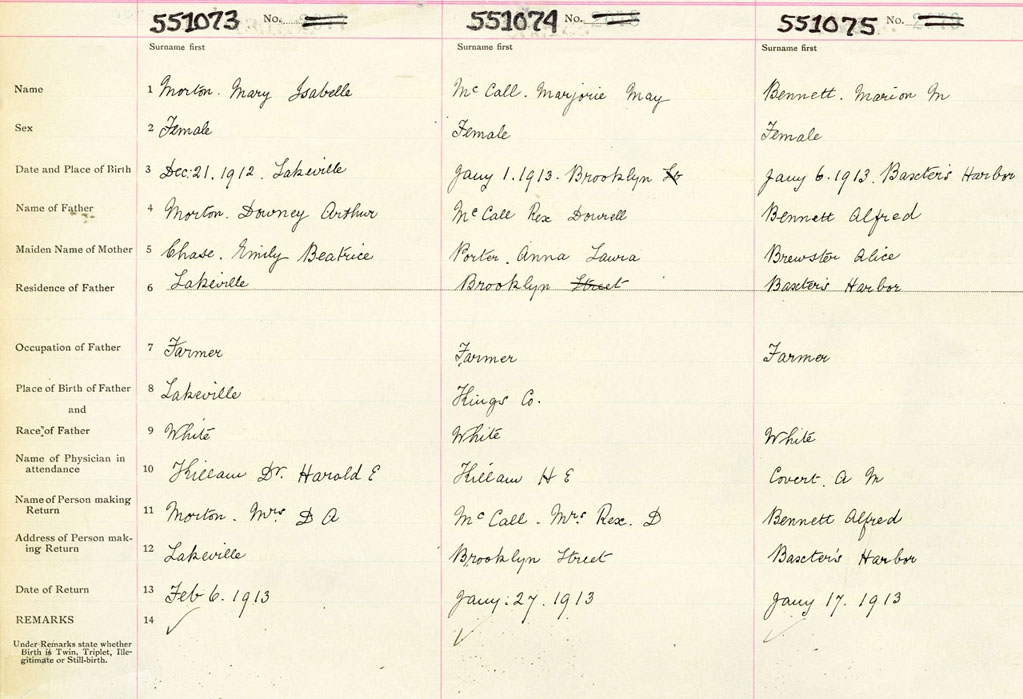 551073 No. 551074 No. 551075 No.
Surname first Surname first Surname first
Name 1 Morton. Mary Isabelle McCall. Marjorie May Bennett. Marion M
Sex 2 Female Female Female
Date and Place of Birth 3 Dec. 21. 1912. Lakeville Jany 1. 1913. Brooklyn St Jany 6. 1913. Baxter's Harbor
Name of Father 4 Morton. Downey Arthur McCall Rex Dowell Bennett Alfred
Maiden Name of Mother 5 Chase. Emily Beatrice Porter. Anna Laura Brewster Alice
Residence of Father 6 Lakeville Brooklyn Street Baxter's Harbor
Occupation of Father 7 Farmer Farmer Farmer
Place of Birth of Father 8 Lakeville Kings Co.
and
Race of Father 9 White White White
Name of Physician in
attendance 10 Killam Dr. Harold E Killam H E Covert. A M
Name of Person making
Return 11 Morton. Mrs D A McCall. Mrs Rex. D Bennett Alfred
Address of Person mak-
ing Return 12 Lakeville Brooklyn Street Baxter's Harbor
Date of Return 13 Feb 6. 1913 Jany. 27. 1913 Jany 17. 1913
REMARKS 14
Under Remarks state whether
Birth is Twin, Triplet, Ille-
gitimate or Still-birth.